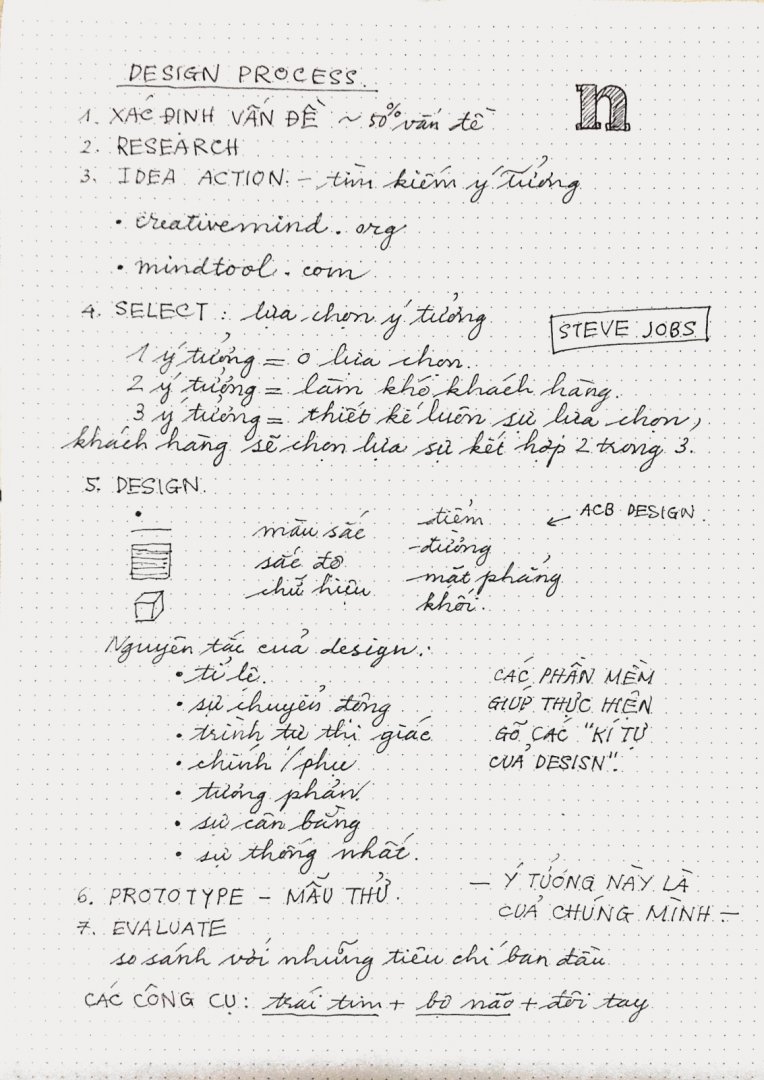 DESIGN PROCESS.
n
1. XÁC ĐỊNH VẤN ĐỀ ~ 50% vấn đề
2. RESEARCH
3. IDEA ACTION. - tìm kiếm ý tưởng
• creativemind.org
• mindtool.com
4. SELECT: lựa chọn ý tưởng
STEVE JOBS
1 ý tưởng = 0 lựa chọn.
2 ý tưởng = làm khó khách hàng.
3 ý tưởng = thiết kế luôn sự lựa chọn,
khách hàng sẽ chọn lựa sự kết hợp 2 trong 3.
5. DESIGN.
màu sắc
sắc độ
chữ hiệu
điểm
- đường
- mặt phẳng
khối.
← ACB DESIGN.
Nguyên tắc của design:
• tỉ lệ.
• sự chuyển động
• trình tự thị giác
• chính/phụ
• tương phản.
• sự cân bằng
• sự thống nhất.
CÁC PHẦN MỀM
GIÚP THỰC HIỆN
GÕ CÁC "KÍ TỰ
CUẢ DESISN".
6. PROTOTYPE - MẪU THỬ.
— Ý TƯỞNG NÀY LÀ
CUẢ CHÚNG MÌNH —
7. EVALUATE
so sánh với những tiêu chí ban đầu
CÁC CÔNG CỤ: trái tim + bộ não + đôi tay